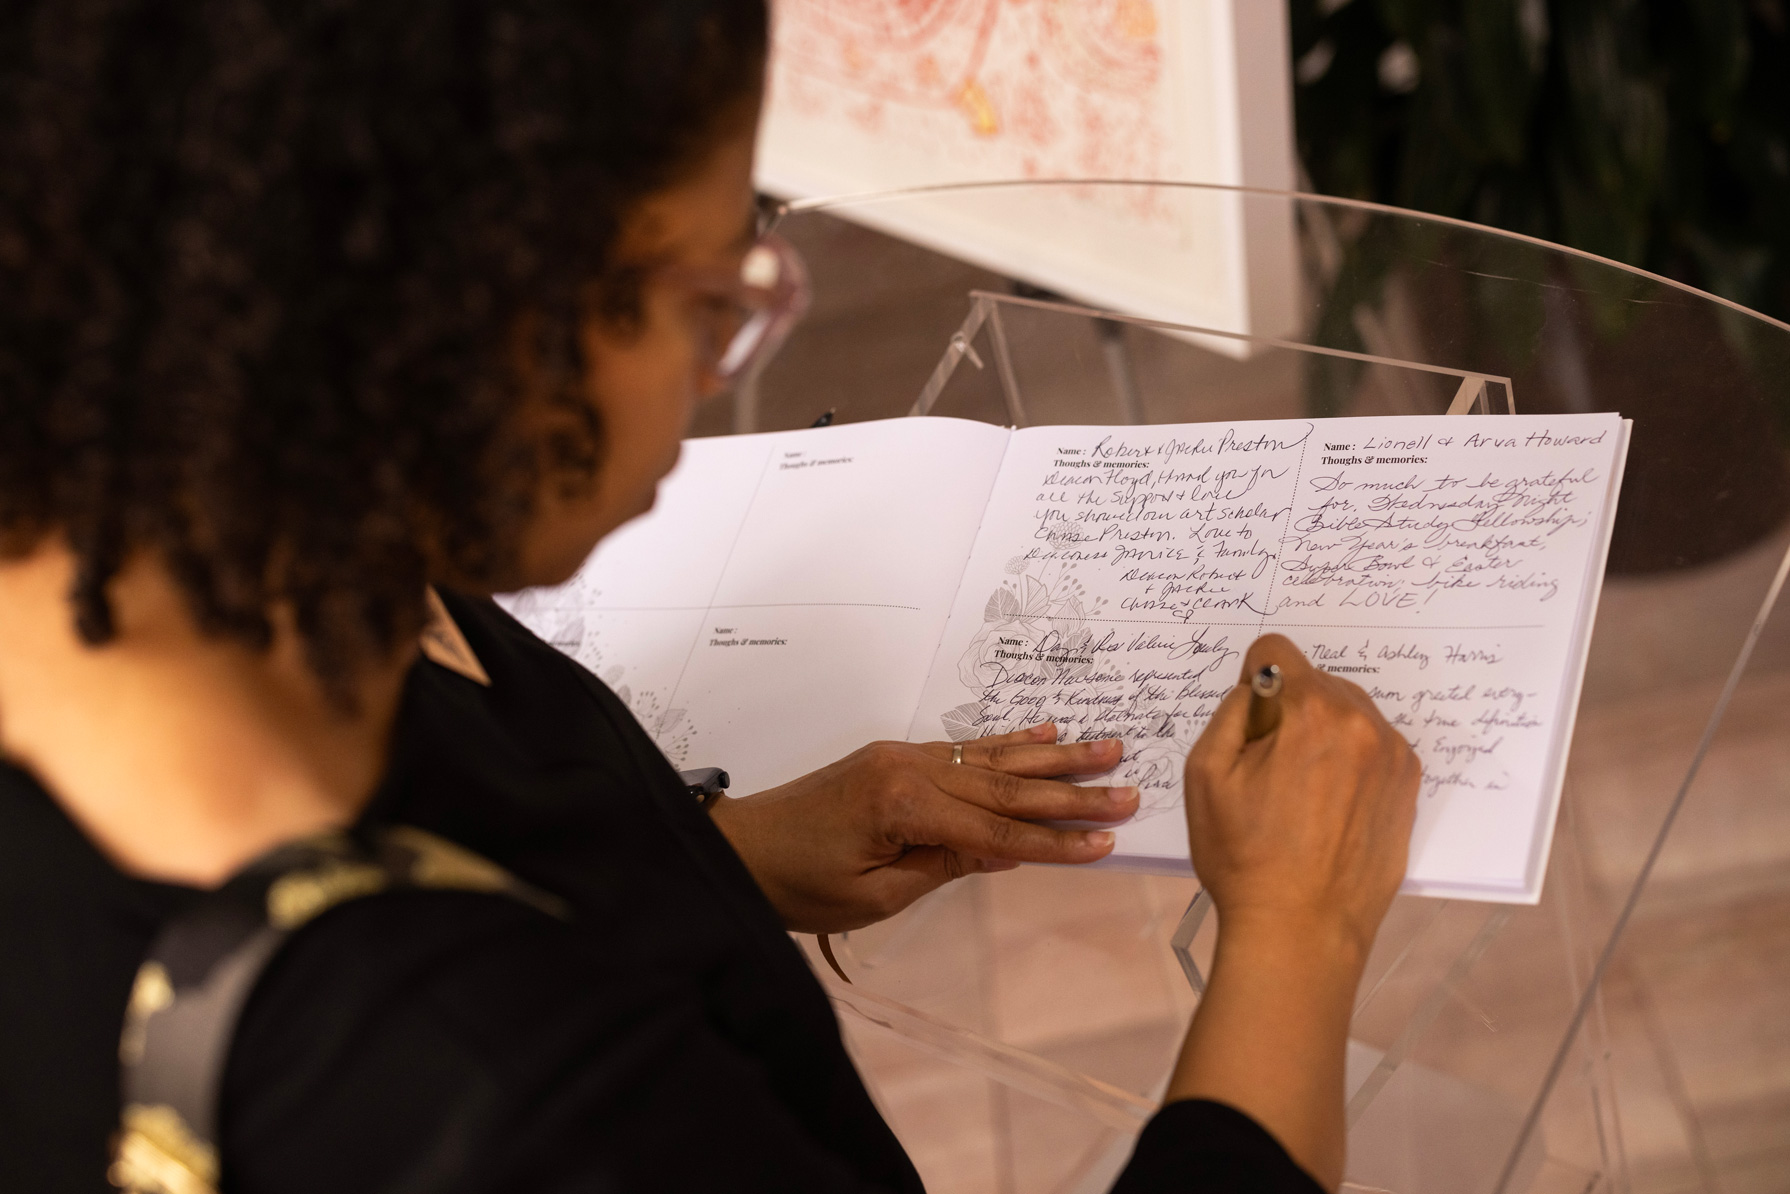 Name :
Thoughs & memories:
Name :
Thoughs & memories:
Name : Robert & Jackie Preston
Thoughs & memories:
Deacon Floyd, thank you for
all the support & love
you showed our art scholar
Chase Preston. Love to
Deaconess Janice & Family.
Deacon Robert
& Jackie
Chase & Clark
Name : Lionell & Arva Howard
Thoughs & memories:
So much to be grateful
for. Wednesday Night
Bible Study Fellowship;
New Year's breakfast,
Super Bowl & Easter
celebration; bike riding
and LOVE!
Name : & Rev Valerie
Thoughs & memories:
Deacon represented
the Good & Kindness of the Blessed
Soul, He was a
a testment to the
: Neal & Ashley Harris
& memories:
sum greeted every-
the true definition
. Enjoyed
together in